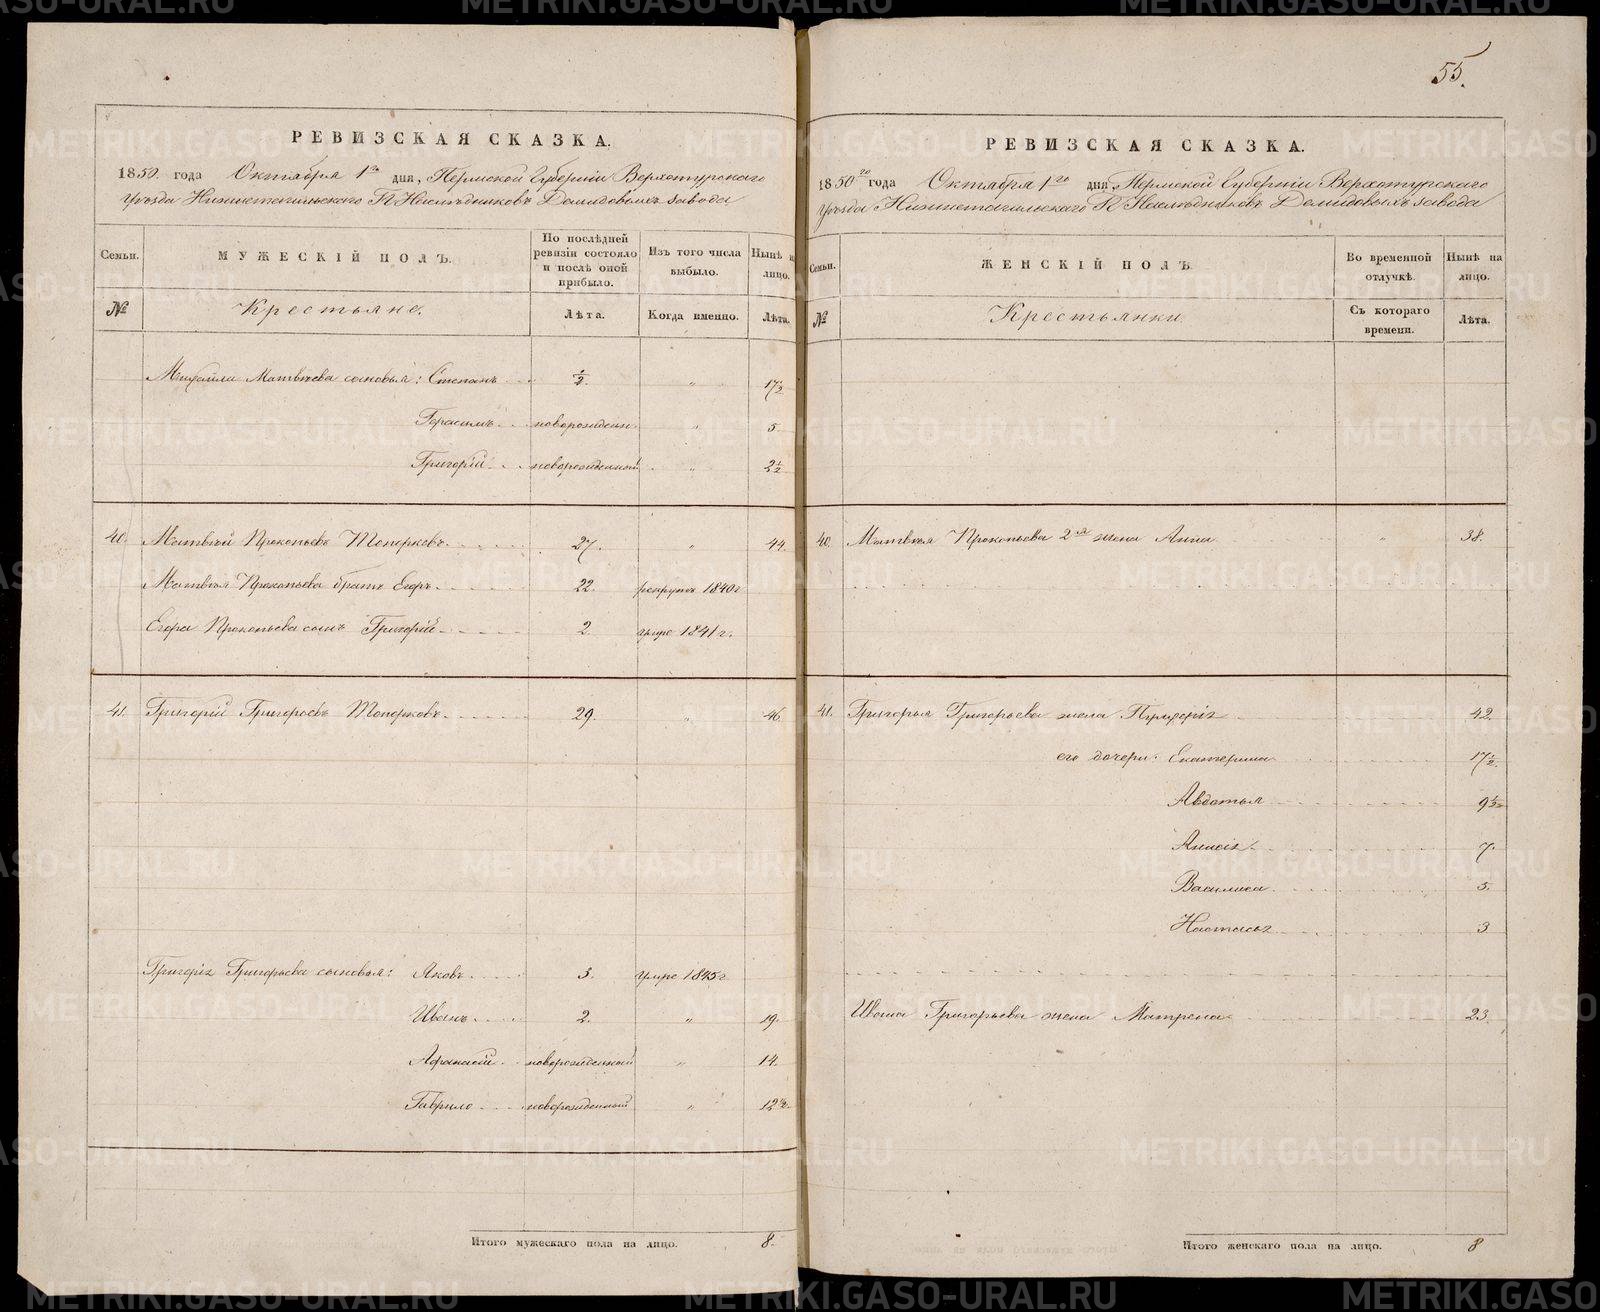 55.
РЕВИЗСКАЯ СКАЗКА.
1850. года Октября 1го дня, Пермской Губерніи Верхотурскаго
уѣзда Нижнетагильскаго Г. Наслѣдниковъ Демидовыхъ завода
Семьи.
МУЖЕСКІЙ ПОЛЪ.
По послѣдней ревизіи состояло и послѣ оной прибыло.
Изъ того числа выбыло.
Нынѣ на лицо.
№
Крестьяне.
Лѣта.
Когда именно.
Лѣта.
Михаила Матвѣева сыновья: Степанъ ½. " 17½
Герасимъ новорожден. " 5.
Григорій новорожденной " 2½
40. Матвѣй Прокопьевъ Топорковъ. 27. " 44.
Матвѣя Прокопьева братъ Егоръ 22. рекрутъ 1840 г
Егора Прокопьева сынъ Григорій 2. умре 1841 г.
41. Григорій Григорьевъ Топорковъ. 29. " 46.
Григорія Григорьева сыновья: Яковъ 3. умре 1845 г
Иванъ 2. " 19.
Афанасій новорожденной " 14.
Гаврило новорожденной " 12½.
Итого мужескаго пола на лицо. 8.
РЕВИЗСКАЯ СКАЗКА.
1850го года Октября 1го дня, Пермской Губерніи Верхотурскаго
уѣзда Нижнетагильскаго Г. Наслѣдниковъ Демидовыхъ завода
Семьи.
ЖЕНСКІЙ ПОЛЪ.
Во временной отлучкѣ.
Нынѣ на лицо.
№
Крестьянки.
Съ котораго времени.
Лѣта.
40. Матвѣя Прокопьева 2ая жена Анна " 38.
41. Григорья Григорьева жена 42.
его дочери: Екатерина 17½.
Авдотья 9½
Анисія 7.
Василиса 5.
Настасья 3
Ивана Григорьева жена Матрена 23.
Итого женскаго пола на лицо. 8
METRIKI.GASO-URAL.RU